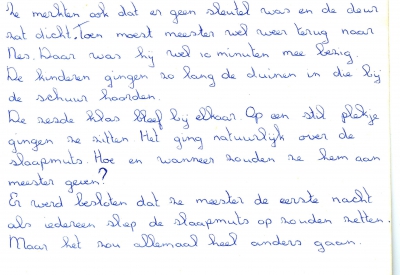 Ze merkten ook dat er geen sleutel was en de deur
zat dicht. Toen moest meester wel weer terug naar
Nes. Daar was hij wel 10 minuten mee bezig.
De kinderen gingen zo lang de duinen in die bij
de schuur hoorden.
De zesde klas bleef bij elkaar. Op een stil plekje
gingen ze zitten Het ging natuurlijk over de
slaapmuts. Hoe en wanneer zouden ze hem aan
meester geven?
Er werd besloten dat ze meester de eerste nacht
als iedereen sliep de slaapmuts op zouden zetten.
Maar het zou allemaal heel anders gaan.